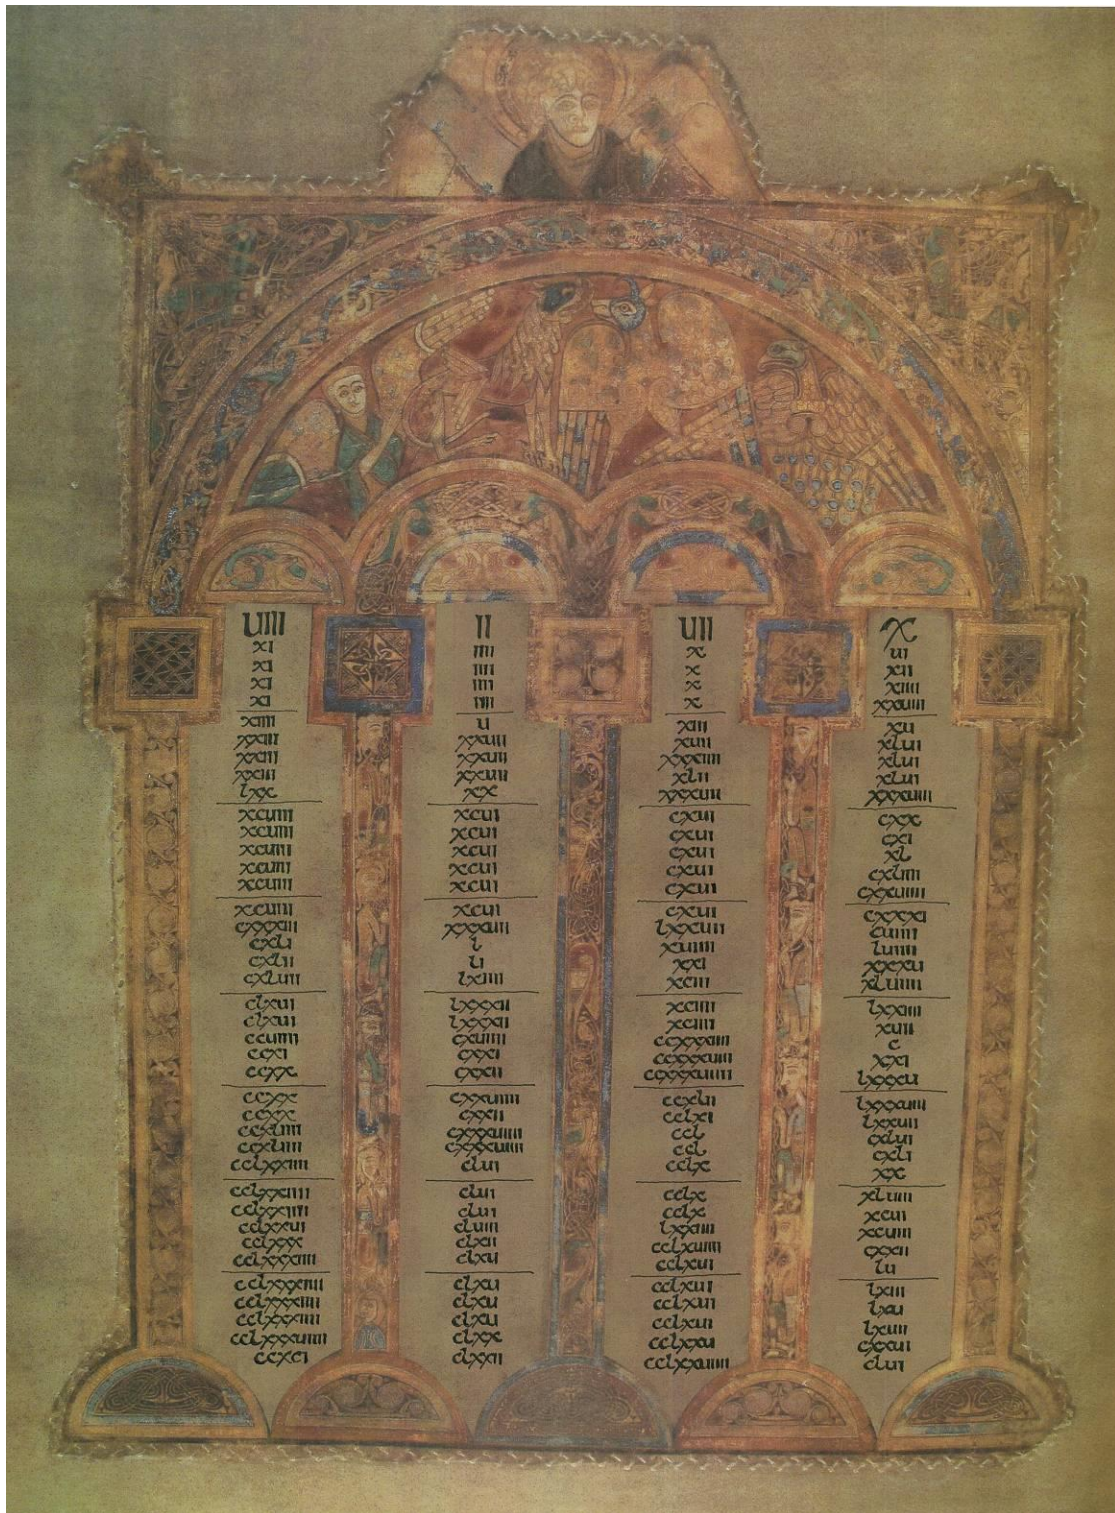 UIII
xi
xi
xi
xi
xiiii
xxiii
xxiii
xxiii
lxx
xcuiiii
xcuiiii
xcuiiii
xcuiiii
xcuiiii
xcuiiii
cxxxiii
cxli
cxlii
cxluii
clxui
clxui
ccuiiii
ccxi
ccxx
ccxx
ccxx
ccxliiii
ccxliiii
cclxxiiii
cclxxiiii
cclxxiiii
cclxxui
cclxxx
cclxxxiiii
cclxxxiiii
cclxxxiiii
cclxxxiiii
cclxxxuiiii
ccxci
II
iiii
iiii
iiii
iiii
u
xxuii
xxuii
xxuii
xx
xcui
xcui
xcui
xcui
xcui
xcui
xxxuii
l
li
lxiiii
lxxxii
lxxxii
cxuiiii
cxxi
cxxii
cxxuiiii
cxxii
cxxxuiiii
cxxxuiiii
clui
clui
clui
cluiii
clxii
clxu
clxu
clxu
clxu
clxx
clxxii
UII
x
x
x
x
xiii
xuii
xxxiiii
xlii
xxxuii
cxui
cxui
cxui
cxui
cxui
cxui
lxxuii
xuiiii
xxi
xciii
xciiii
xciiii
ccxxxiiii
ccxxxuiii
ccxxxuiiii
ccxlii
cclxi
ccl
ccl
cclx
cclx
cclx
lxxiiii
cclxuiiii
cclxui
cclxui
cclxui
cclxui
cclxxu
cclxxuiiii
X
ui
xii
xiiii
xxuiii
xu
xlui
xlui
xlui
xxxuiii
cxx
cxi
xl
cxliiii
cxxuiiii
cxxxi
cuiiii
luiiii
xxxu
xluiiii
lxxiiii
xuii
c
xxi
lxxxu
lxxxuiii
lxxuii
cxlui
cxli
xx
xluiiii
xcui
xcuiii
cxxii
lu
lxiii
lxu
lxuii
cxxui
clui